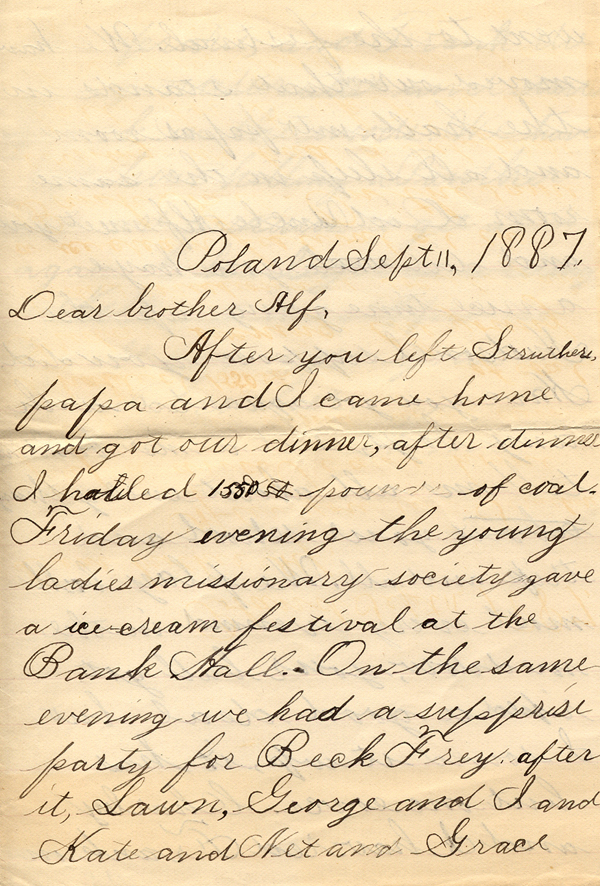 Poland Sept 11, 1887.
Dear brother Alf,
After you left Struthers,
papa and I came home
and got our dinner, after dinner
I hauled pounds of coal.
Friday evening the young
ladies missionary society gave
a ice-cream festival at the
Bank Hall. - On the same
evening we had a supprise
party for Beck Frey. after
it, Lawn, George and I and
Kate and Net and Grace